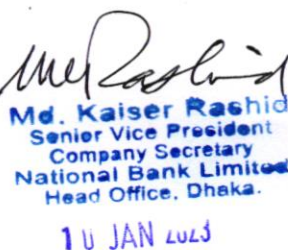 Md. Kaiser Rashid
Senior Vice President
Company Secretary
National Bank Limited
Head Office, Dhaka.
10 JAN 2023